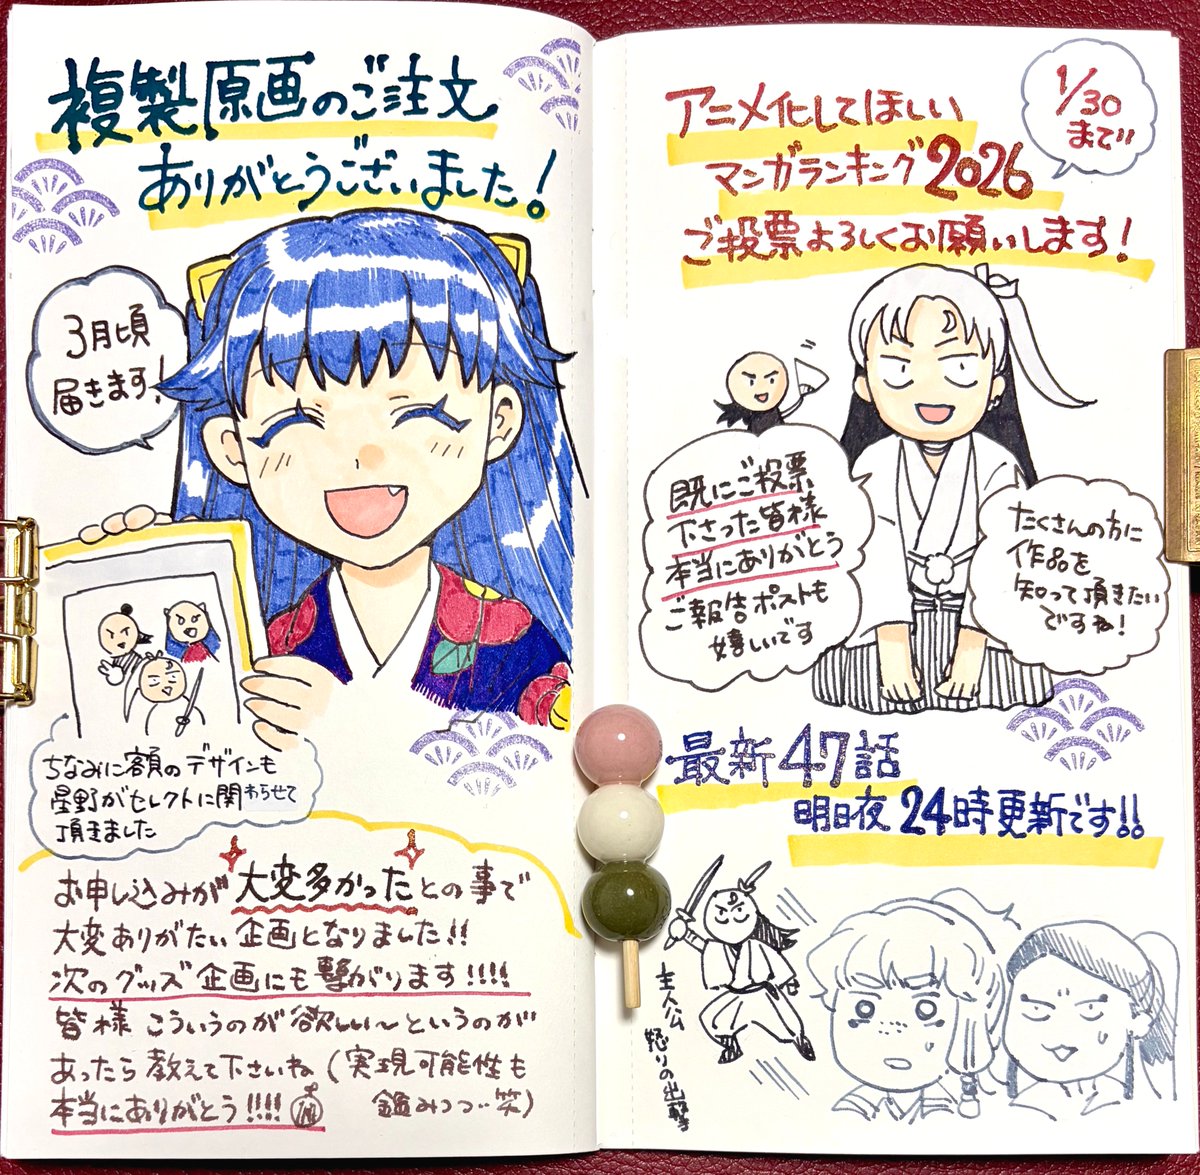 複製原画のご注文
ありがとうございました!
3月頃
届きます!
ちなみに額のデザインも
星野がセレクトに関わらせて
頂きました
お申し込みが大変多かったとの事で
大変ありがたい企画となりました!!
次のグッズ企画にも繋がります!!!!
皆様こういうのが欲しい〜というのが
あったら教えて下さいね(実現可能性も
鑑みつつ…笑)
本当にありがとう!!!!
アニメ化してほしい
マンガランキング2026
ご投票よろしくお願いします!
1/30
まで
既にご投票
下さった皆様
本当にありがとう
ご報告ポストも
嬉しいです
たくさんの方に
作品を
知って頂きたい
ですね!
最新47話
明日夜24時更新です!!
主人公
怒りの出撃